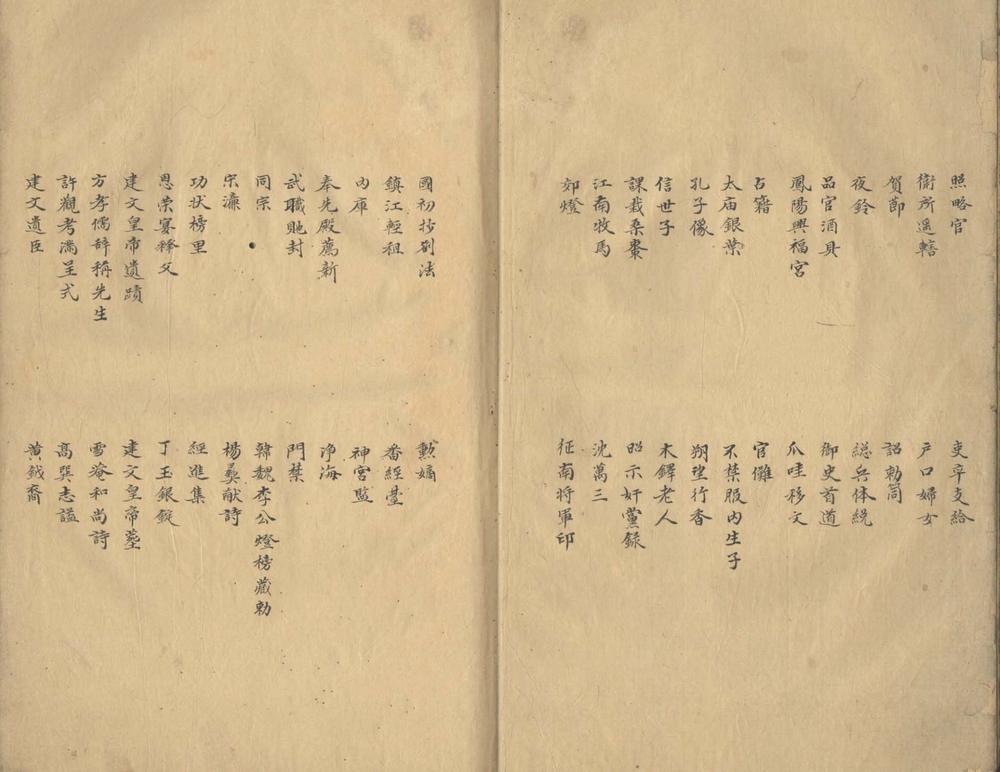 照略官
吏卒支給
衛所遥轄
户口婦女
賀節
詔勅筒
夜鈴
総兵体統
品官酒具
御史首道
鳳陽興福宮
爪哇移文
占籍
官儺
太庙銀葉
不禁服内生子
孔子像
朔望行香
信世子
木鐸老人
課栽桑棗
昭示奸黨録
江南牧馬
沈萬三
郊燈
征南将軍印
國初抄劄法
勲嫡
鎮江輕租
番經臺
内庫
神宮監
奉先殿薦新
浄海
武職貤封
門禁
同宗
韓魏李公燈榜藏勅
宋濂
楊彛献詩
功状榜里
經進集
恩荣宴釋父
丁玉銀錠
建文皇帝遺蹟
建文皇帝墓
方孝儒辞稱先生
雪菴和尚詩
許觀考滿呈式
髙巽志謚
建文遺臣
黄鉞裔